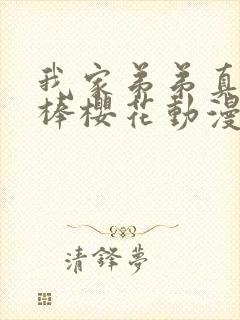 我家弟弟真
棒櫻花動漫
清鋒夢